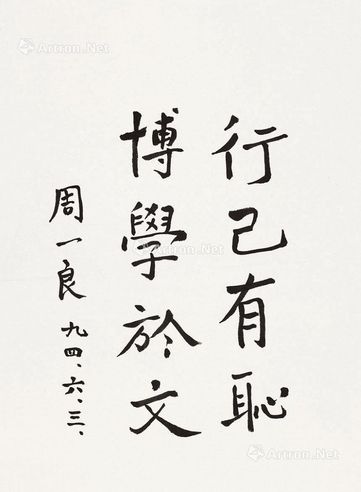 行己有恥
博學於文
周一良 九四、六、三、
Artron.Net
Artron.Net
Artron.Net